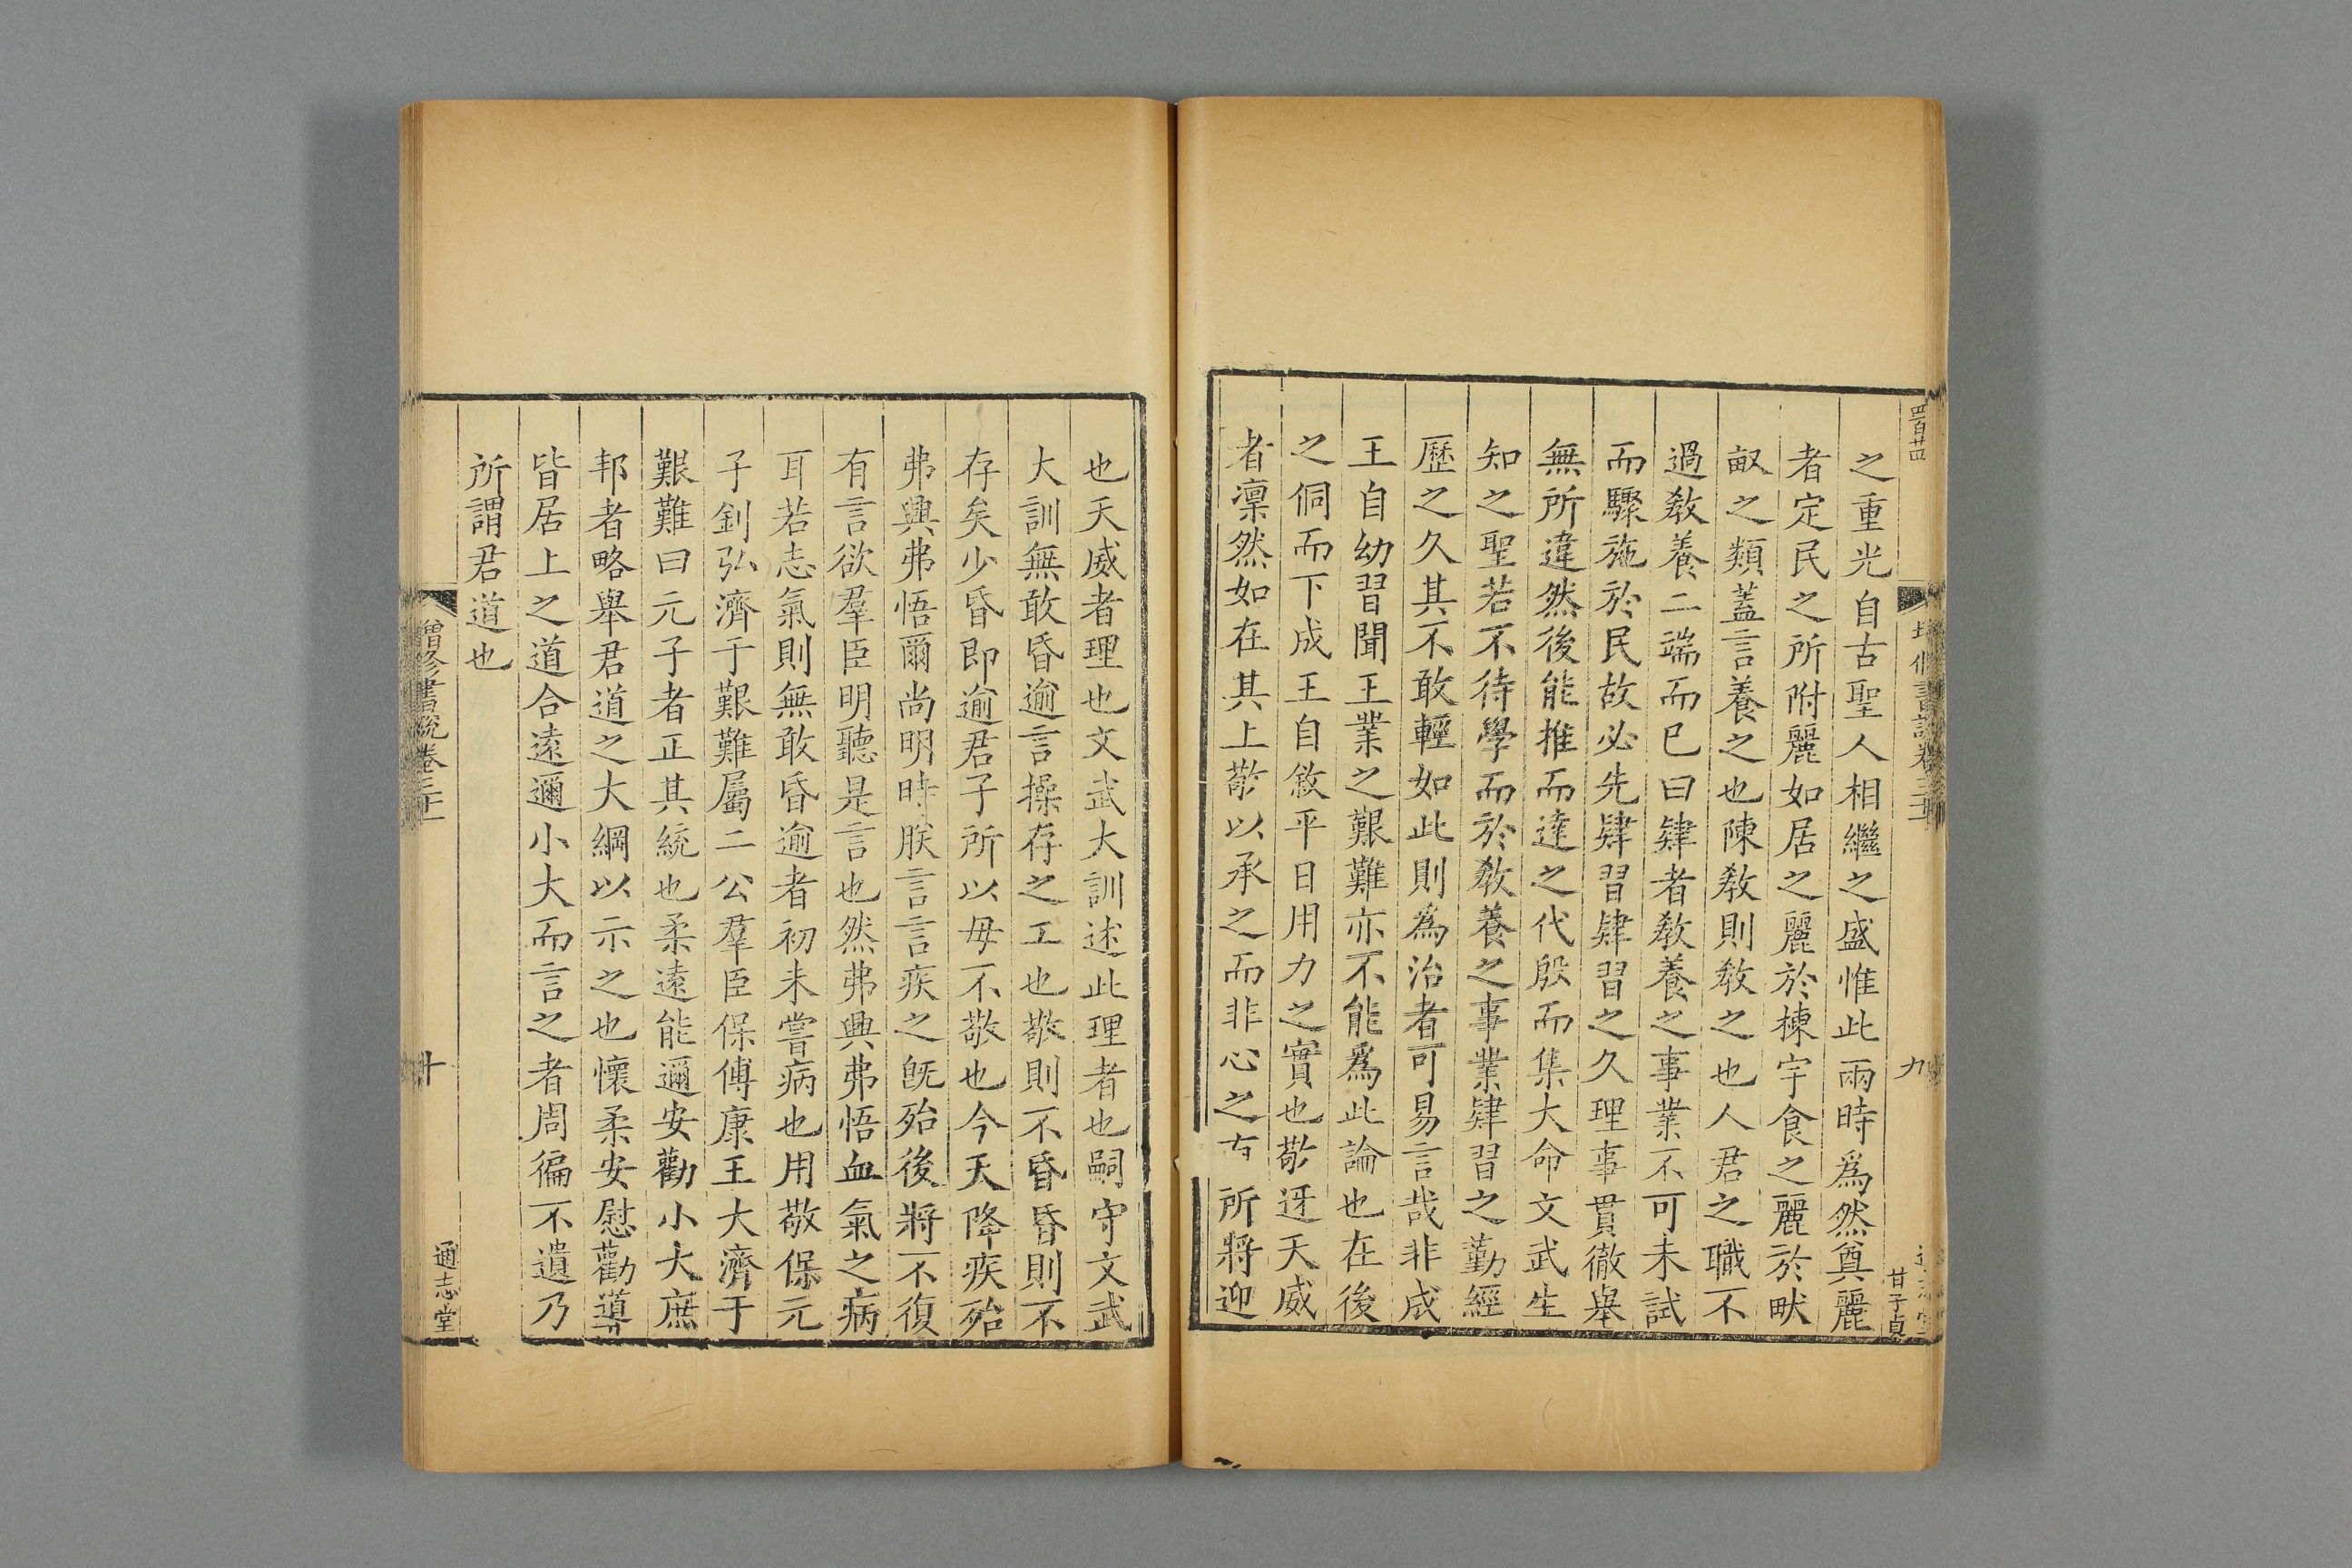 之重光自古聖人相繼之盛惟此兩時爲然奠麗
者定民之所附麗如居之麗於棟宇食之麗於畎
畝之類蓋言養之也陳敎則敎之也人君之職不
過敎養二端而已曰肄者敎養之事業不可未試
而驟施於民故必先肄習肄習之久理事貫徹舉
無所違然後能推而達之代殷而集大命文武生
知之聖若不待學而於敎養之事業肄習之勤經
歷之久其不敢輕如此則爲治者可易言哉非成
王自幼習聞王業之艱難亦不能爲此論也在後
之侗而下成王自敘平日用力之實也敬迓天威
者凛然如在其上敬以承之而非心之有所將迎
四百廿四
九
甘子貞
也天威者理也文武大訓述此理者也嗣守文武
大訓無敢昏逾言操存之工也敬則不昏昏則不
存矣少昏即逾君子所以毋不敬也今天降疾殆
弗興弗悟爾尚明時朕言言疾之旣殆後將不復
有言欲羣臣明聽是言也然弗興弗悟血氣之病
耳若志氣則無敢昏逾者初未嘗病也用敬保元
子釗弘濟于艱難屬二公羣臣保傅康王大濟于
艱難曰元子者正其統也柔遠能邇安勸小大庶
邦者略舉君道之大綱以示之也懷柔安慰勸導
皆居上之道合遠邇小大而言之者周徧不遺乃
所謂君道也
增修書說卷三十
十
通志堂